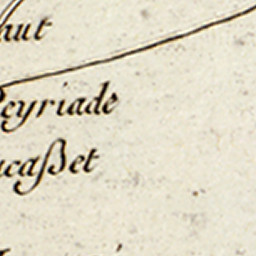 aut
eyriade
caßet